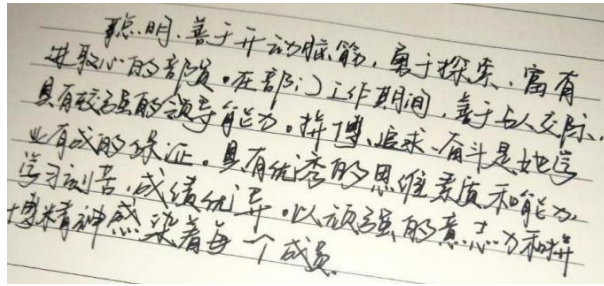 聪明、善于开动脑筋，勇于探索、富有
进取心的部员。在部门工作期间，善于与人交际，
具有较强的领导能力。拼博、追求、奋斗是她学
业有成的保证。具有优秀的思维素质和能力，
学习刻苦，成绩优异。以顽强的意志力和拼
博精神感染着每一个成员